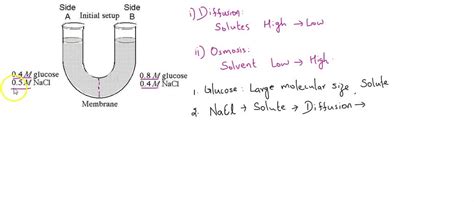 Side Side
A Initial setup B
0.4 M glucose
0.5 M NaCl
0.8 M glucose
0.4 M NaCl
Membrane
i) Diffusion:
Solutes High → Low
ii) Osmosis:
Solvent Low → High.
1. Glucose: Large molecular size, Solute
2. NaCl → Solute → Diffusion →